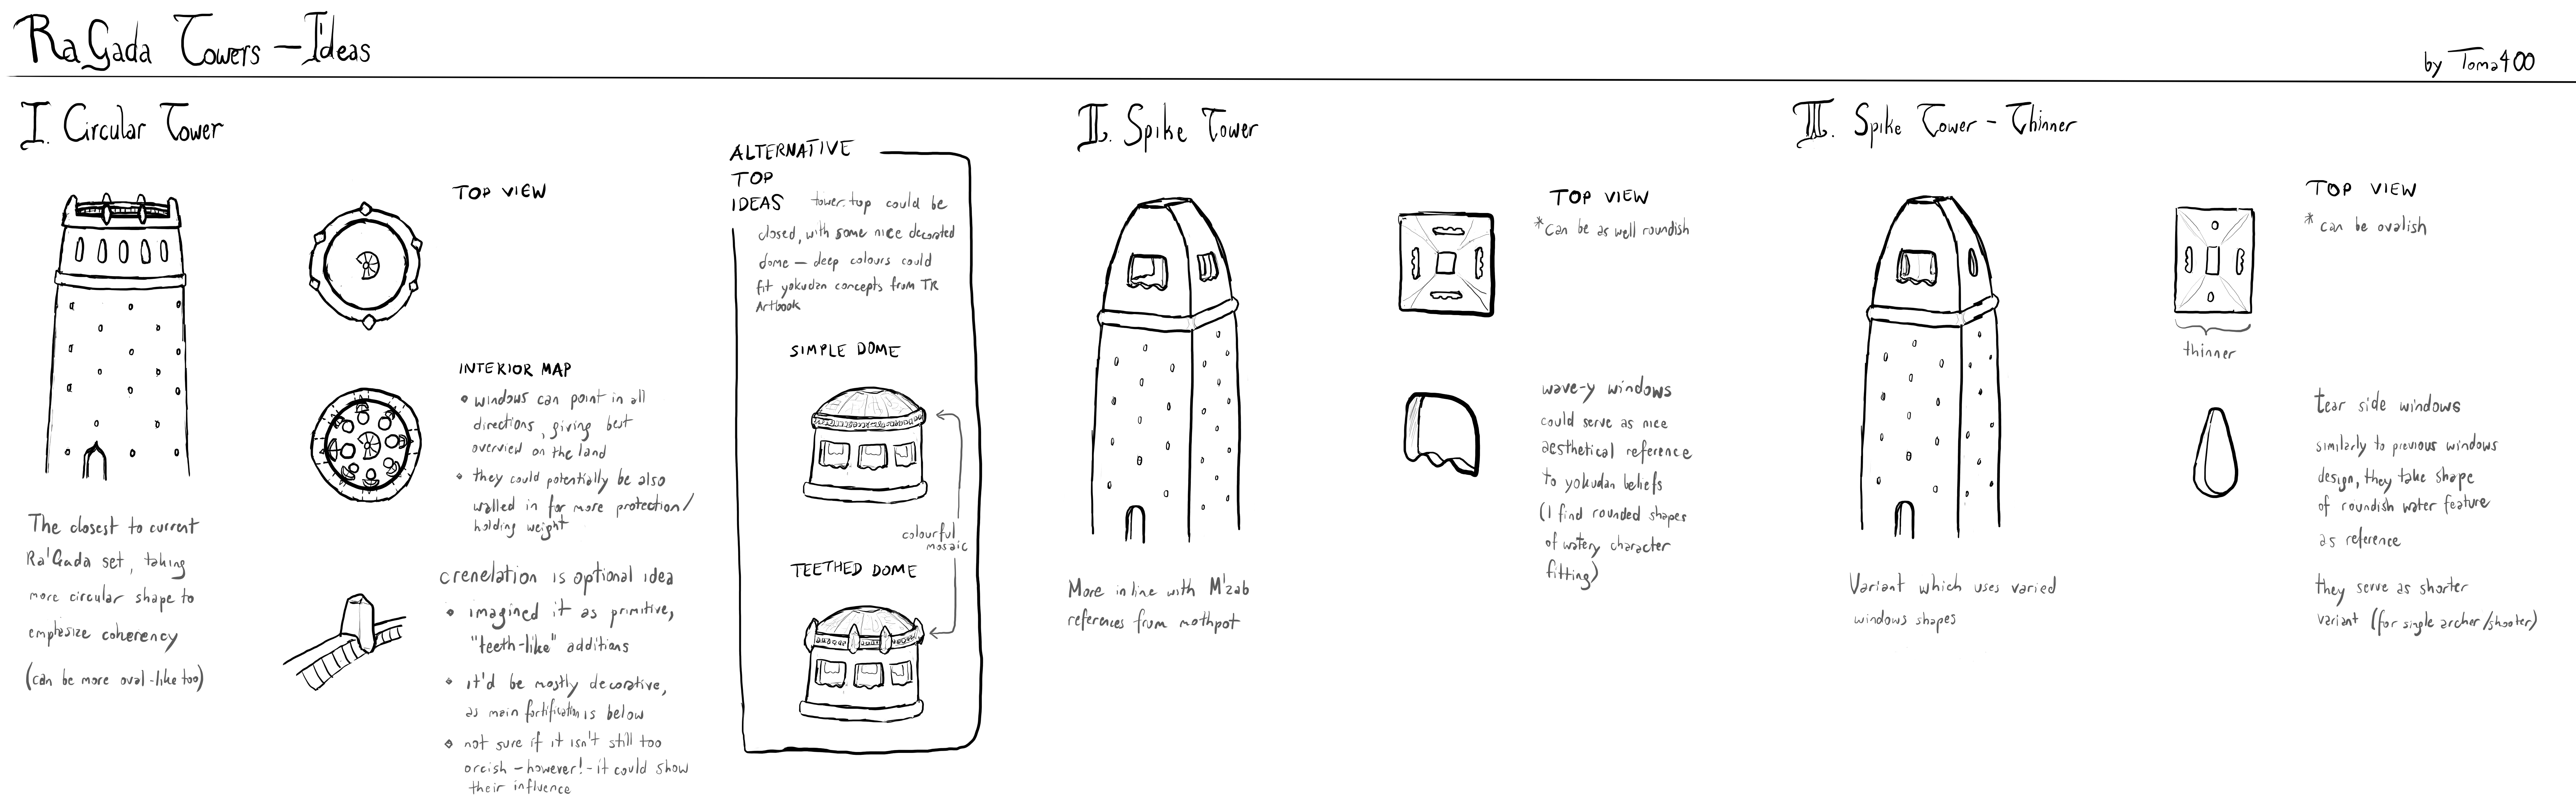 Ra Gada Towers - Ideas
by Toma400
I. Circular Tower
TOP VIEW
INTERIOR MAP
• windows can point in all
directions, giving best
overview on the land
• they could potentially be also
walled in for more protection/
holding weight
The closest to current
Ra'Gada set, taking
more circular shape to
emphasize coherency
(can be more oval-like too)
crenelation is optional idea
• imagined it as primitive,
"teeth-like" additions
• it'd be mostly decorative,
as main fortification is below
• not sure if it isn't still too
orcish - however! - it could show
their influence
ALTERNATIVE
TOP
IDEAS
tower top could be
closed, with some nice decorated
dome - deep colours could
fit yokudan concepts from TR
Artbook
SIMPLE DOME
colourful
mosaic
TEETHED DOME
II. Spike Tower
TOP VIEW
*can be as well roundish
wave-y windows
could serve as nice
aesthetical reference
to yokudan beliefs
(I find rounded shapes
of watery character
fitting)
More in line with M'zab
references from mothpot
III. Spike Tower - Thinner
TOP VIEW
* can be ovalish
thinner
tear side windows
similarly to previous windows
design, they take shape
of roundish water feature
as reference
they serve as shorter
variant (for single archer/shooter)
Variant which uses varied
windows shapes